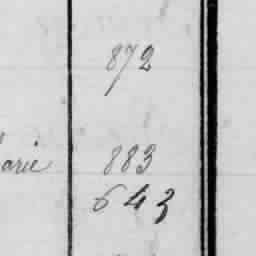 872
arie 883
643